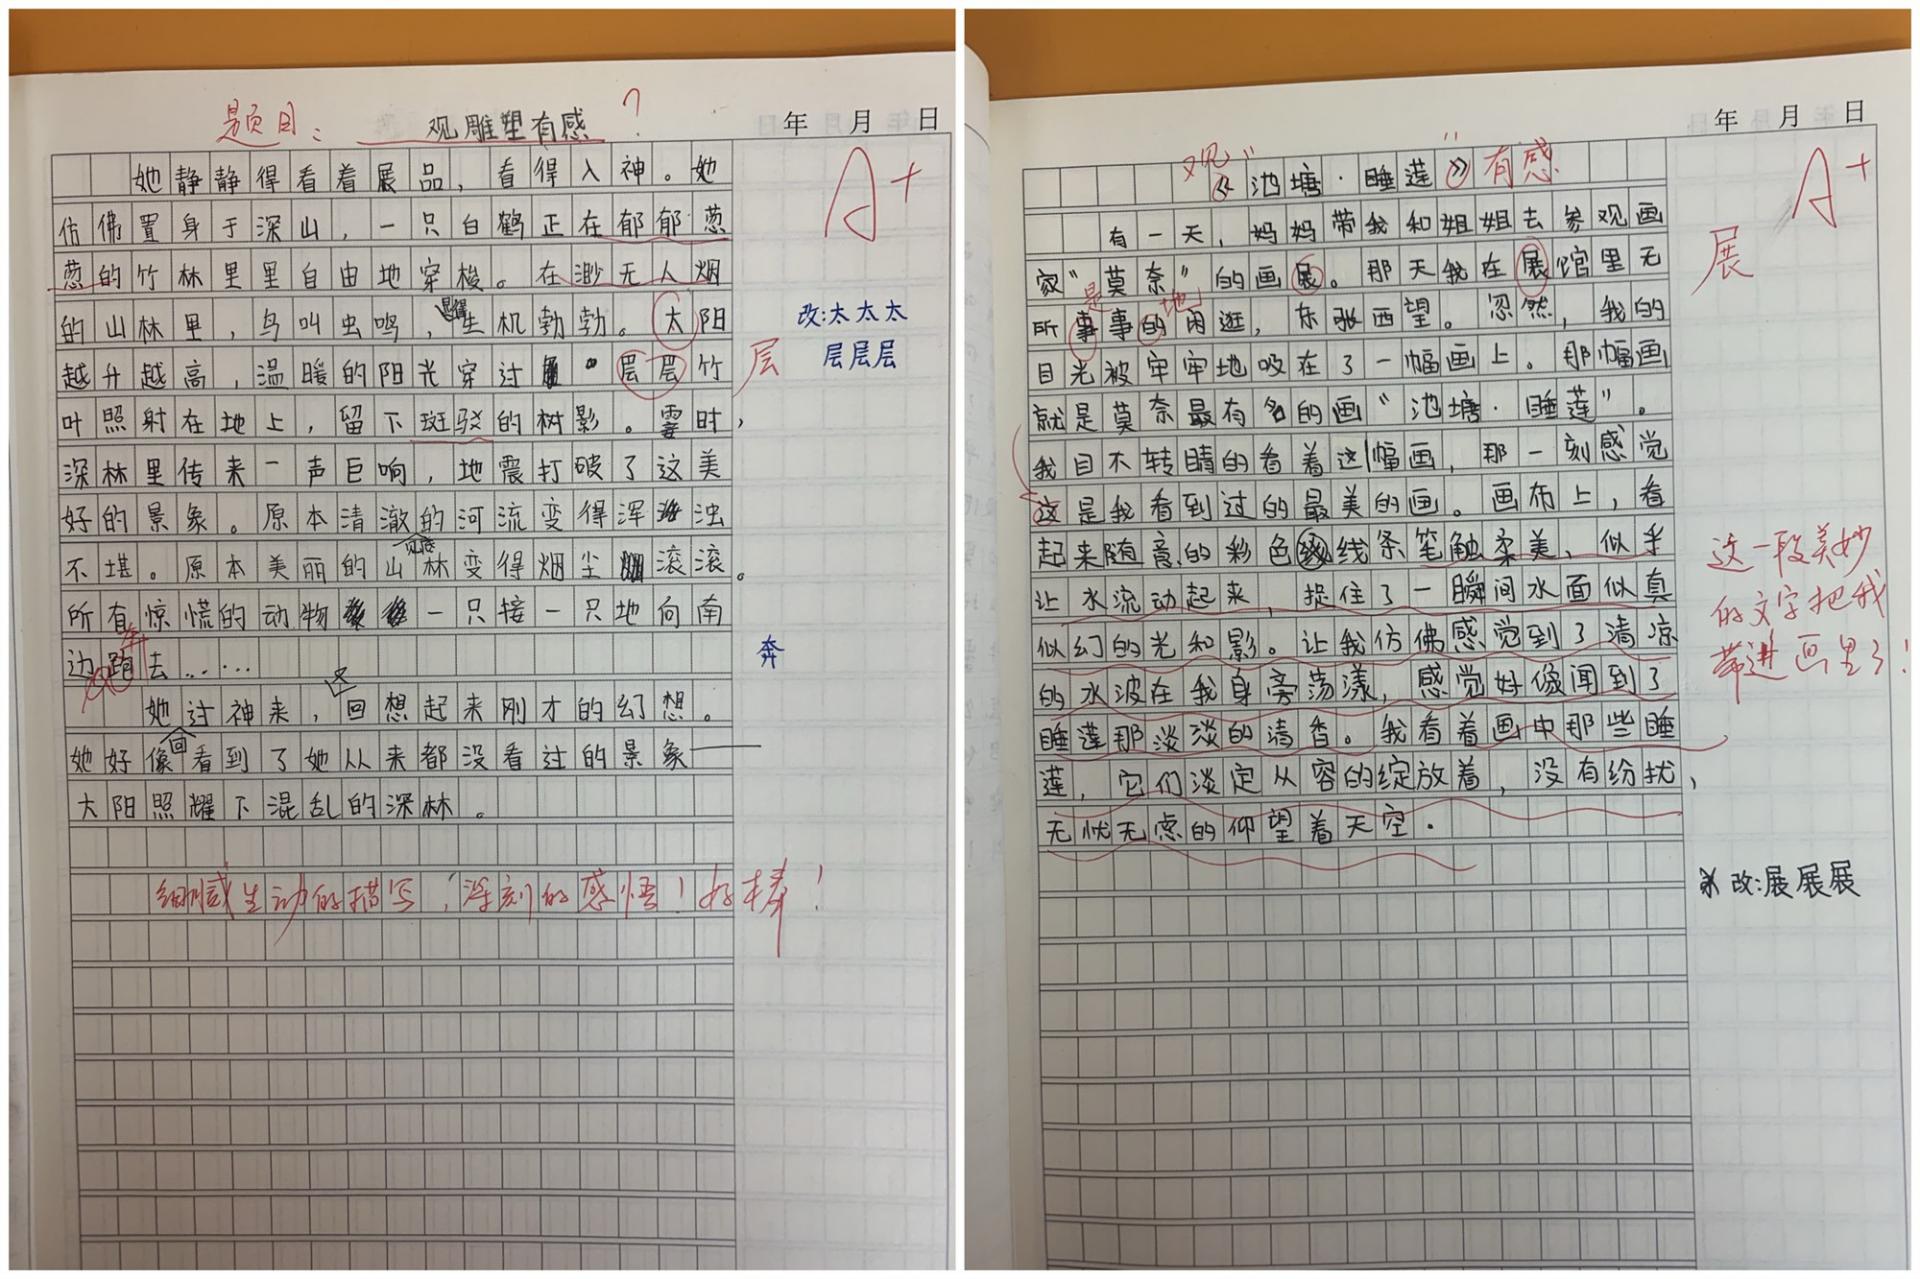 题目：观雕塑有感？
年 月 日
她静静得看着展品，看得入神。她
A+
仿佛置身于深山，一只白鹤正在郁郁葱
葱的竹林里里自由地穿梭。在渺无人烟
的山林里，鸟叫虫鸣，显得生机勃勃。太阳
改:太太太
越升越高，温暖的阳光穿过层层竹
层
层层层
叶照射在地上，留下斑驳的树影。霎时，
深林里传来一声巨响，地震打破了这美
好的景象。原本清澈见底的河流变得浑浊
不堪。原本美丽的山林变得烟尘滚滚。
所有惊慌的动物一只接一只地向南
边跑去……
奔
奔
她过神来，这回想起来刚才的幻想。
她好像回看到了她从来都没看过的景象——
太阳照耀下混乱的深林。
细腻生动的描写，深刻的感悟！好棒！
年 月 日
观“《池塘·睡莲》”有感
A+
有一天，妈妈带我和姐姐去参观画
展
家“莫奈”的画展。那天我在展馆里无
是 地
所事事的闲逛，东张西望。忽然，我的
目光被牢牢地吸在了一幅画上。那幅画
就是莫奈最有名的画“池塘·睡莲”。
我目不转睛的看着这幅画，那一刻感觉
这是我看到过的最美的画。画布上，看
起来随意的彩色线条笔触柔美、似乎
让水流动起来，捉住了一瞬间水面似真
似幻的光和影。让我仿佛感觉到了清凉
的水波在我身旁荡漾，感觉好像闻到了
睡莲那淡淡的清香。我看着画中那些睡
莲，它们淡定从容的绽放着，没有纷扰，
无忧无虑的仰望着天空.
这一段美妙
的文字把我
带进画里了！
改:展展展